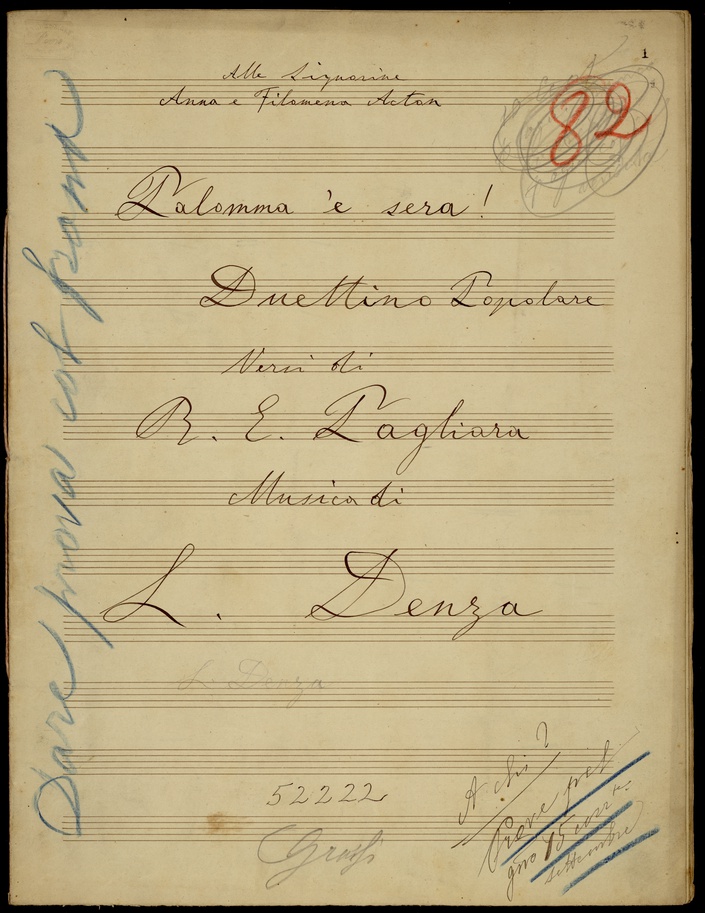 1
82
Alle Signorine
Anna e Filomena Acton
Palomma 'e sera!
Duettino Popolare
Versi di
R. E. Pagliara
Musica di
L. Denza
L. Denza
52222
A chi?
Prove pel
gino 15 corr.te
settembre
Dare prova col